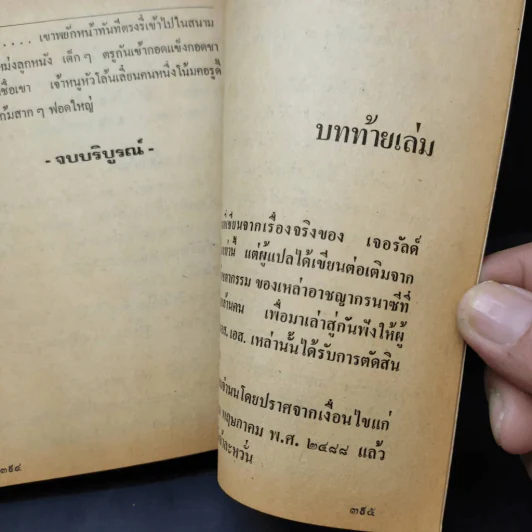 ..... เขาพยักหน้าทันทีตรงรี่เข้าไปในสนาม
ลูกหนัง เด็ก ๆ ครูกันเข้ากอดแข้งกอดขา
ชื่อเขา เจ้าหนูหัวโล้นเลี่ยนคนหนึ่งโน้มคอรูดี้
สาก ๆ ฟอดใหญ่
- จบบริบูรณ์ -
๓๙๔
บทท้ายเล่ม
เขียนจากเรื่องจริงของ เจอรัลด์
แต่ผู้แปลได้เขียนต่อเติมจาก
ของเหล่าอาชญากรนาซีที่
เพื่อมาเล่าสู่กันฟังให้ผู้
เอส. เหล่านั้นได้รับการตัดสิน
โดยปราศจากเงื่อนไขแก่
พฤษภาคม พ.ศ. ๒๔๘๘ แล้ว
๓๙๕